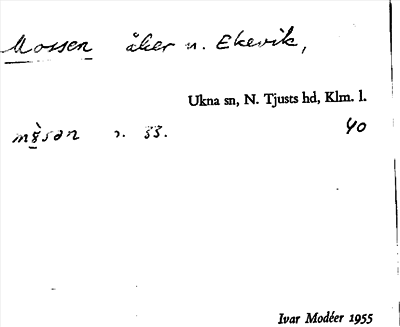 Mossen åker n. Ekevik,
Ukna sn, N. Tjusts hd, Klm. l.
40
Ivar Modéer 1955